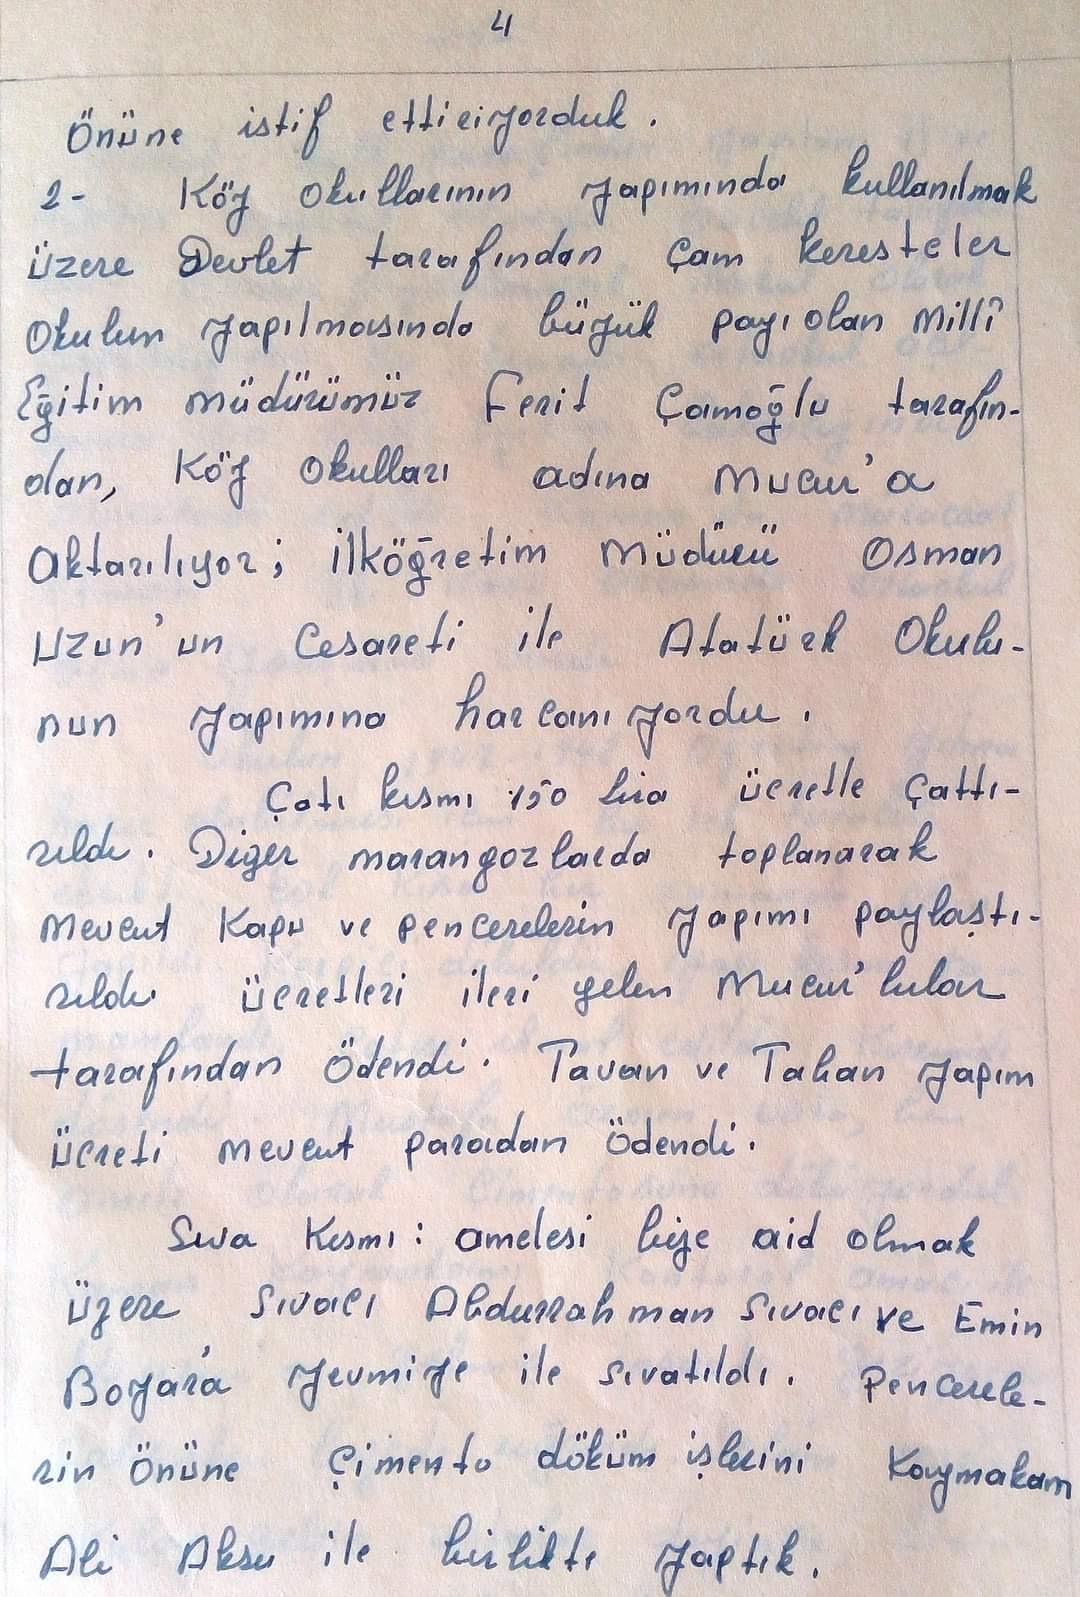 4
Önüne istif ettiriyorduk.
2- Köy Okullarının yapımında kullanılmak
üzere Devlet tarafından Çam keresteler
Okulun yapılmasında büyük payı olan Millî
Eğitim müdürümüz Ferit Çamoğlu tarafın-
dan, Köy Okulları adına Mucur'a
Aktarılıyor; ilköğretim Müdürü Osman
Uzun'un Cesareti ile Atatürk Okulu-
nun yapımına harcanıyordu.
Çatı kısmı 150 lira ücretle Çattı-
rıldı. Diğer marangozlarda toplanarak
Mevcut Kapu ve pencerelerin yapımı paylaştı-
rıldı ücretleri ileri gelen Mucur'lular
tarafından Ödendi. Tavan ve Taban yapım
ücreti mevcut paradan Ödendi.
Sıva Kısmı: amelesi bize aid olmak
üzere Sıvacı Abdurrahman Sıvacı ve Emin
Boyar'a yevmiye ile sıvatıldı. Pencerele-
rin Önüne Çimento döküm işlerini Kaymakam
Ali Aksu ile birlikte yaptık.